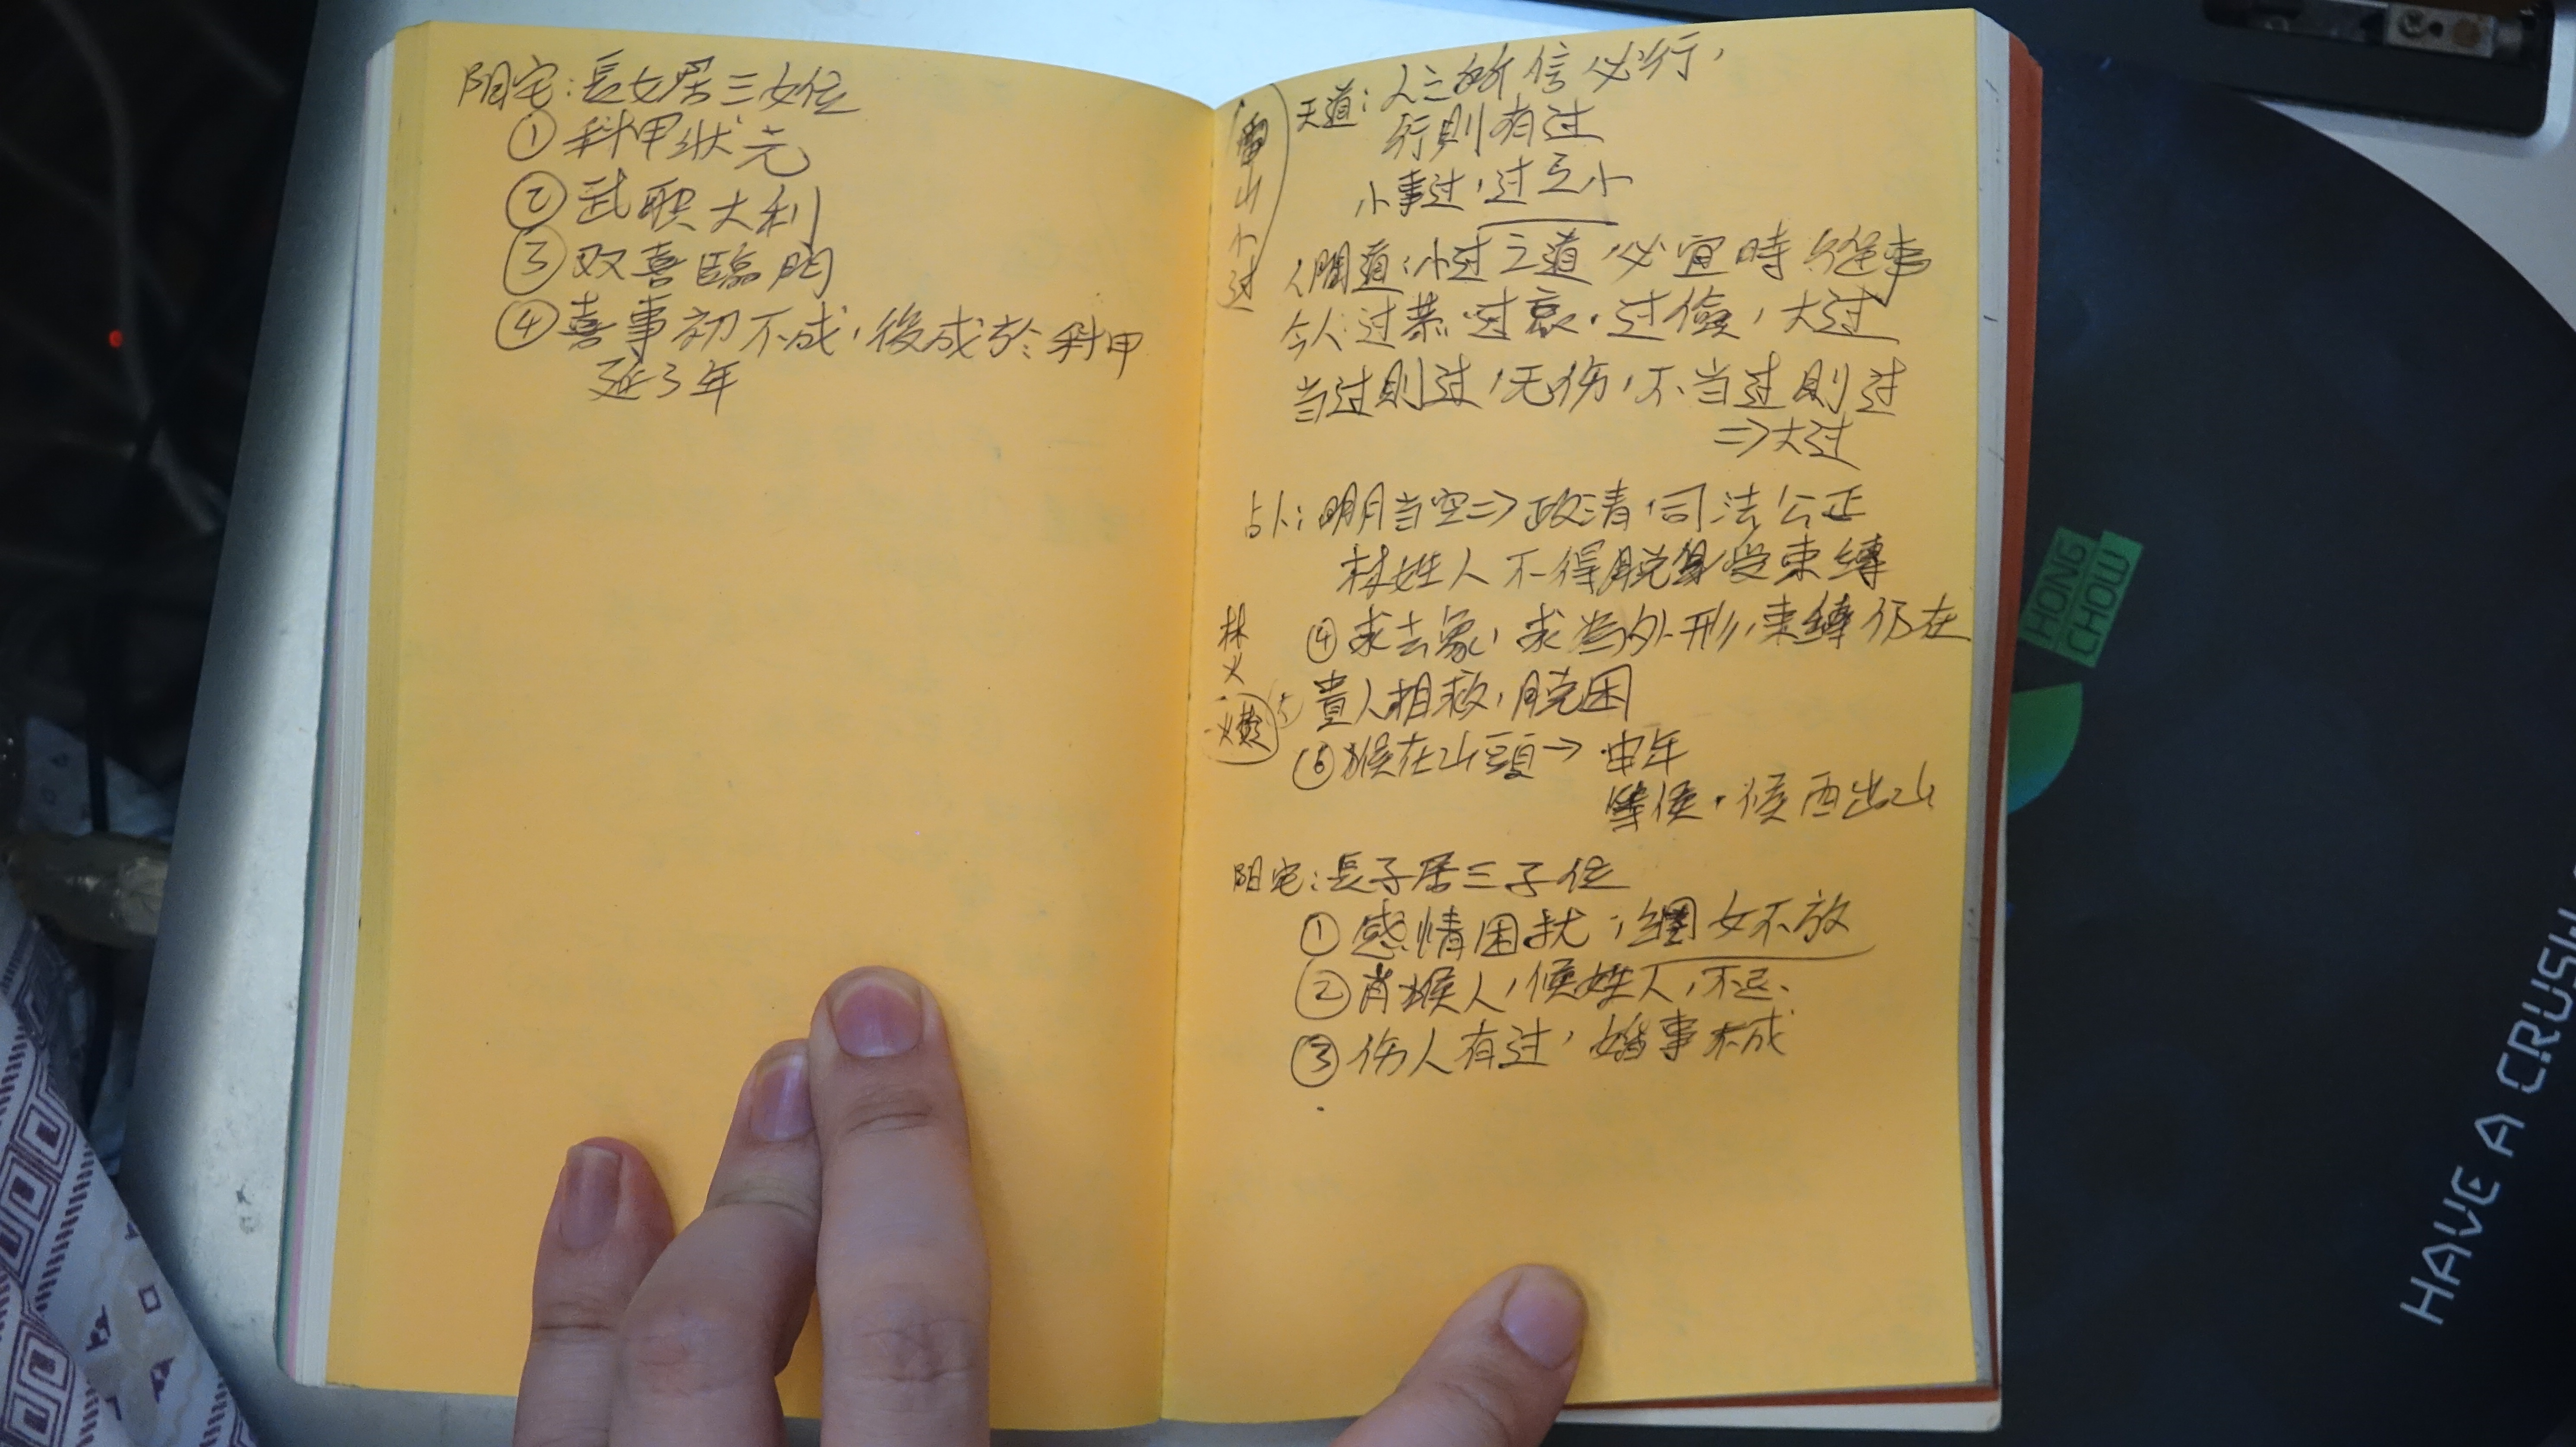 阳宅：長女居三女位
① 科甲狀元
② 武职大利
③ 双喜臨門
④ 喜事初不成，後成於科甲
延3年
雷山小过
天道：人之所信必行，
行則有过
小事过，过之小
人間道：小过之道必宜時 事
今人：过恭．过哀．过儉，大过
当过則过，无伤，不当过則过
⇒大过
占卜：明月当空⇒政清，司法公正
林姓人不得脱身受束縛
④ 求去象，求 外形，束縛仍在
林
火
貴人相救，脱困
⑥ 猴在山頭→ 申年
等候．候酉出山
阳宅：長子居三子位
① 感情困扰； 女不放
② 肖猴人，候姓人，不忌、
③ 伤人有过，婚事未成
HONG
CHOW
HAVE A CRUSH